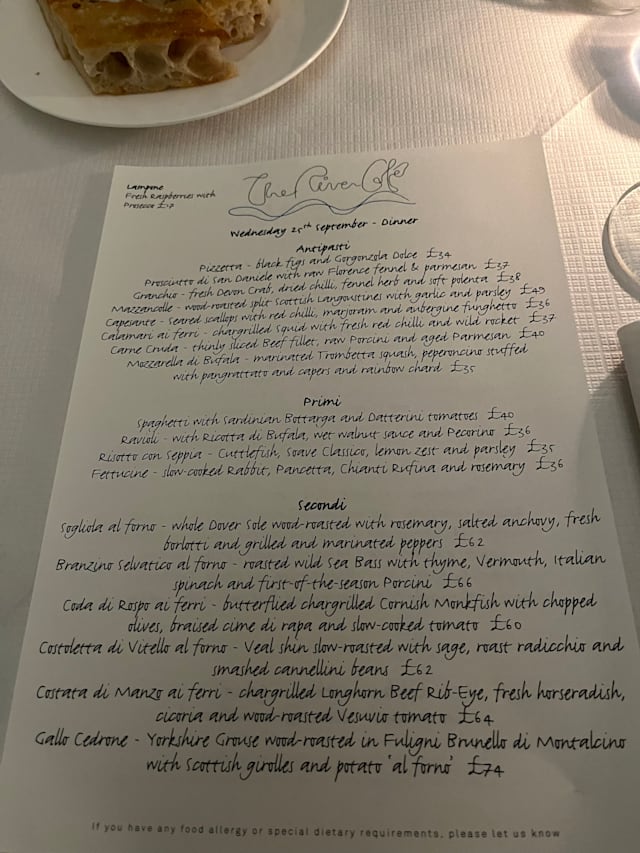 Lampone
Fresh Raspberries with
Prosecco £17
The River Café
Wednesday 25th September - Dinner
Antipasti
Pizzetta - black figs and Gorgonzola Dolce £34
Prosciutto di San Daniele with raw Florence fennel & parmesan £37
Granchio - fresh Devon Crab, dried chilli, fennel herb and soft polenta £38
Mazzancolle - wood-roasted split Scottish Langoustines with garlic and parsley £49
Capesante - seared scallops with red chilli, marjoram and aubergine funghetto £36
Calamari ai ferri - chargrilled squid with fresh red chilli and wild rocket £37
Carne Cruda - thinly sliced Beef fillet, raw Porcini and aged Parmesan £40
Mozzarella di Bufala - marinated Trombetta squash, peperoncino stuffed
with pangrattato and capers and rainbow chard £35
Primi
Spaghetti with Sardinian Bottarga and Datterini tomatoes £40
Ravioli - with Ricotta di Bufala, wet walnut sauce and Pecorino £36
Risotto con Seppia - Cuttlefish, Soave Classico, lemon zest and parsley £35
Fettucine - slow-cooked Rabbit, Pancetta, Chianti Rufina and rosemary £36
Secondi
Sogliola al forno - whole Dover Sole wood-roasted with rosemary, salted anchovy, fresh
borlotti and grilled and marinated peppers £62
Branzino Selvatico al forno - roasted wild Sea Bass with thyme, Vermouth, Italian
spinach and first-of-the-season Porcini £66
Coda di Rospo ai ferri - butterflied chargrilled Cornish Monkfish with chopped
olives, braised cime di rapa and slow-cooked tomato £60
Costoletta di Vitello al forno - Veal shin slow-roasted with sage, roast radicchio and
smashed cannellini beans £62
Costata di Manzo ai ferri - chargrilled Longhorn Beef Rib-Eye, fresh horseradish,
cicoria and wood-roasted Vesuvio tomato £64
Gallo Cedrone - Yorkshire Grouse wood-roasted in Fuligni Brunello di Montalcino
with Scottish girolles and potato 'al forno' £74
If you have any food allergy or special dietary requirements, please let us know